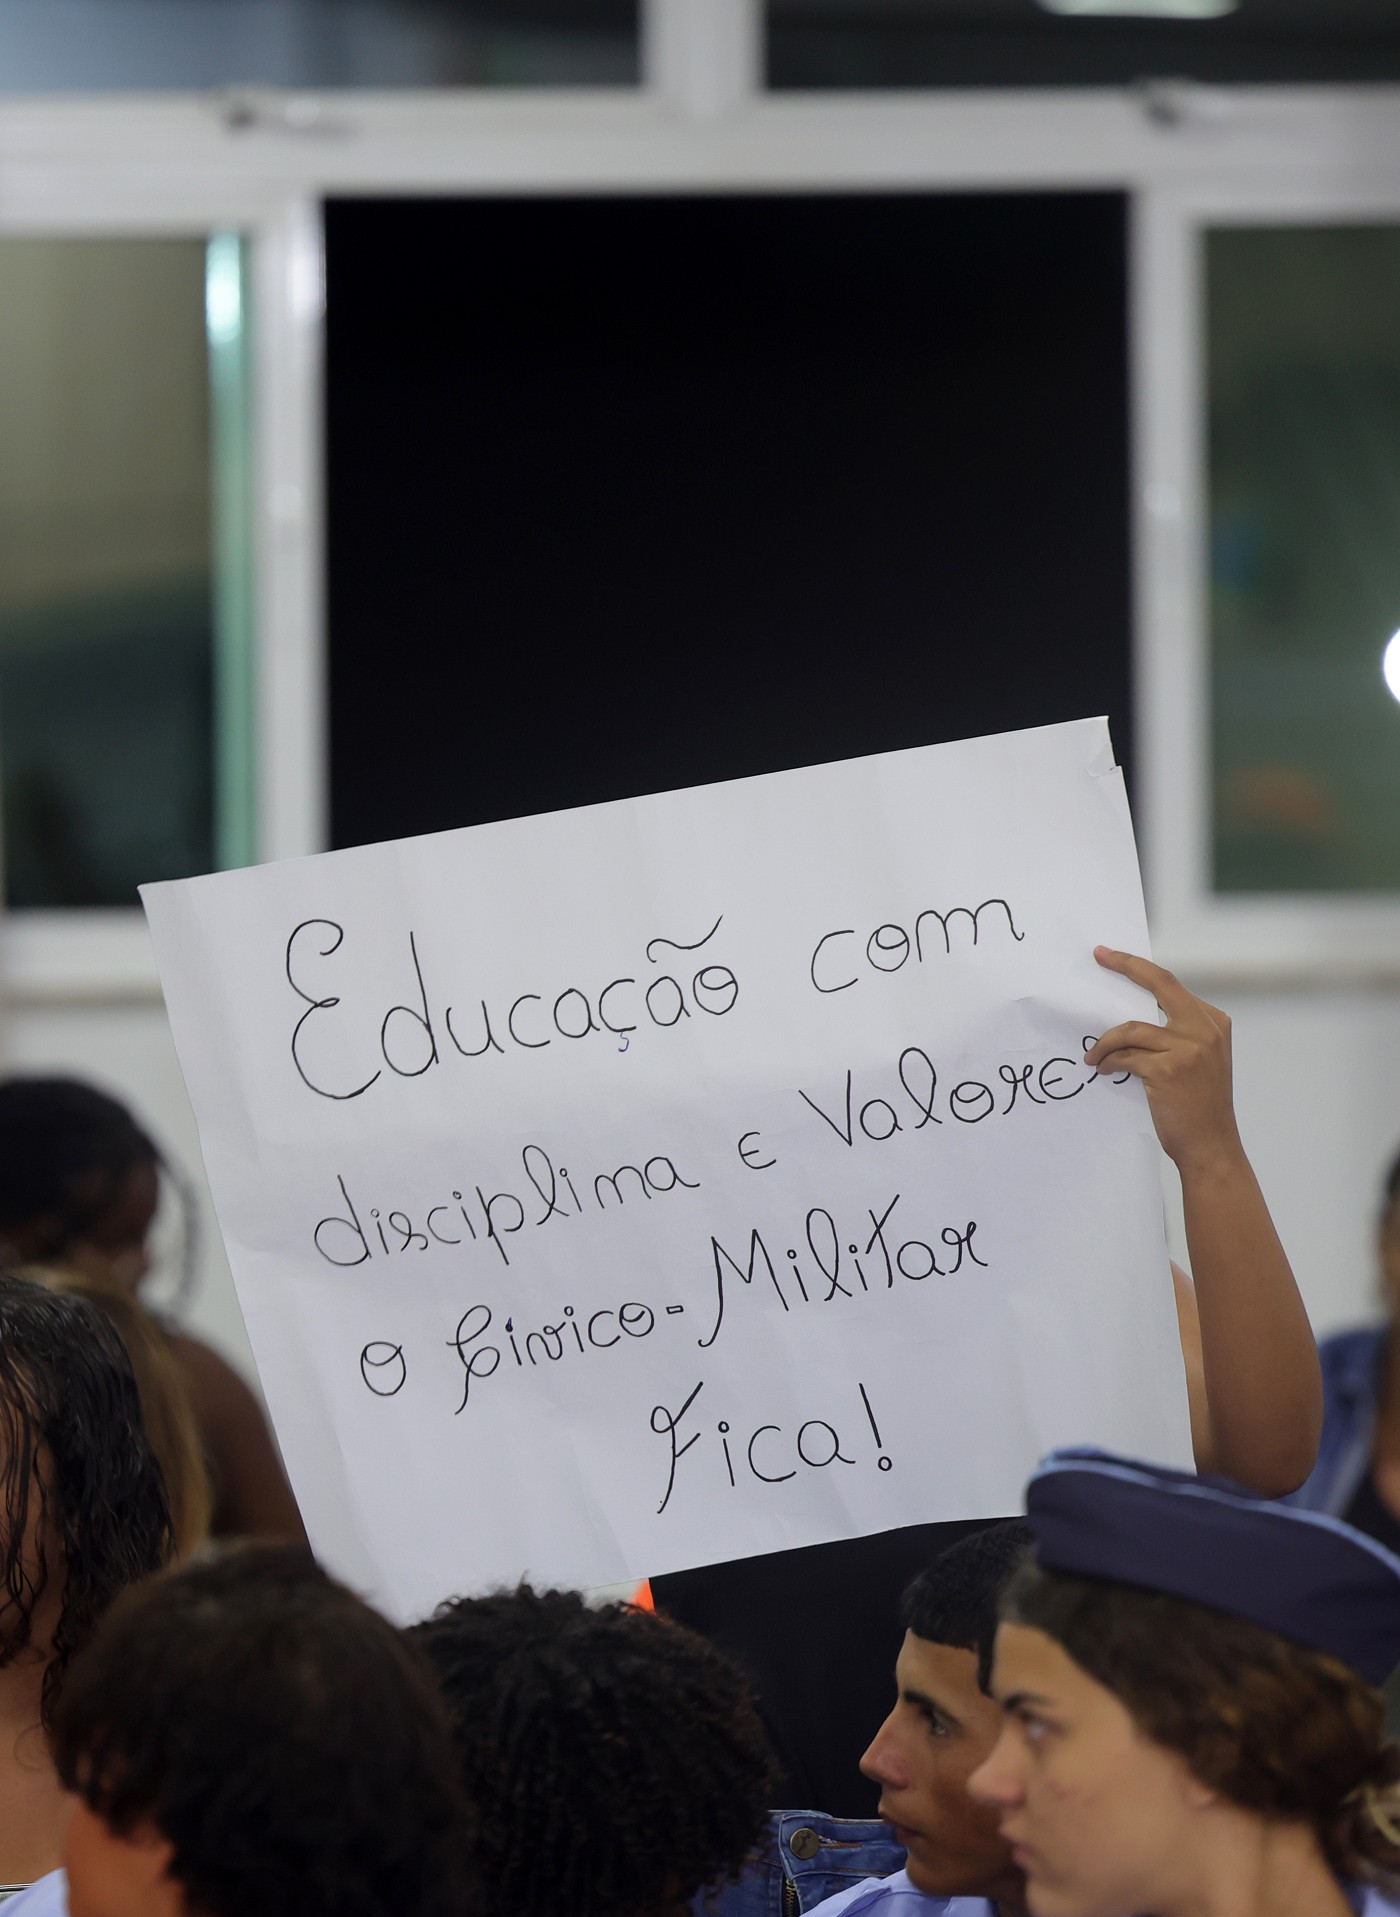 Educação com
disciplima e Valores
o Cívico-Militar
Fica!